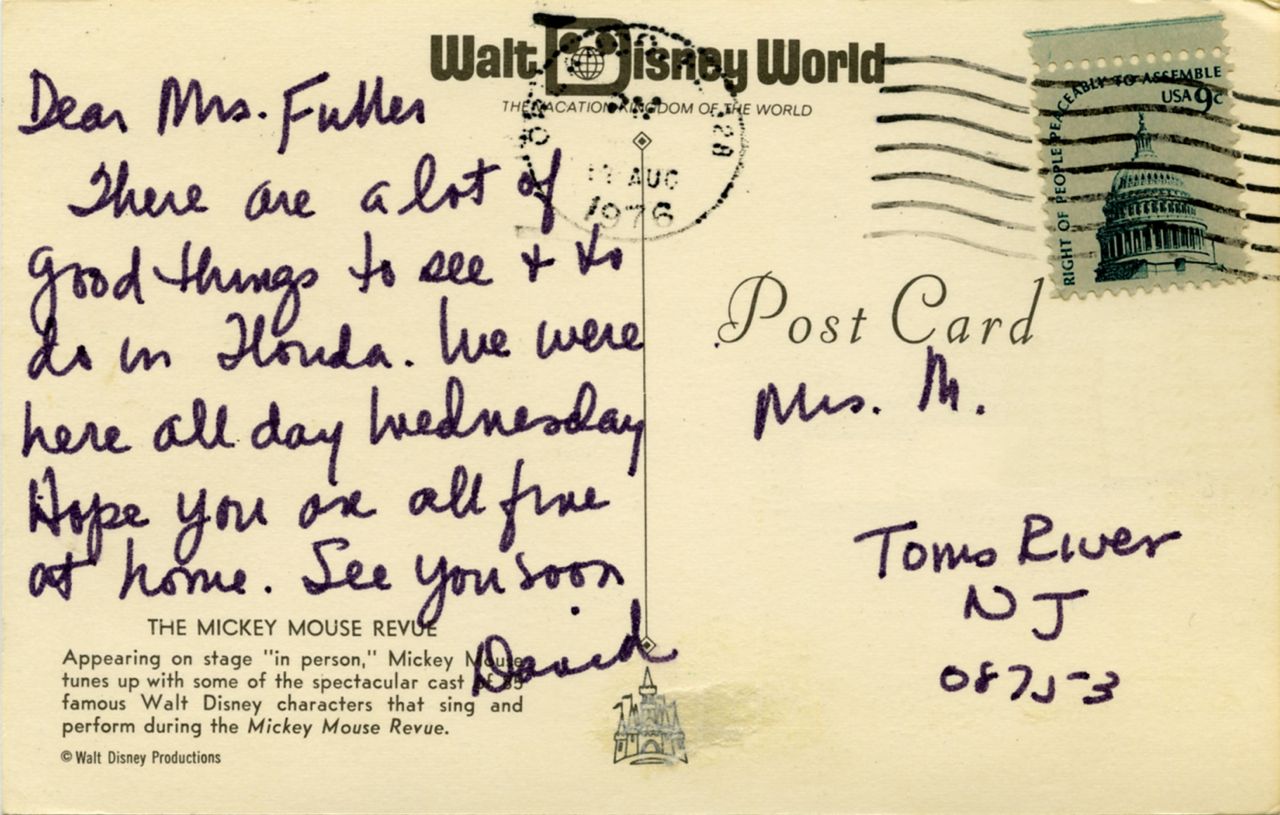 Walt Disney World
THE VACATION KINGDOM OF THE WORLD
PM
28
17 AUG
1976
RIGHT OF PEOPLE PEACEABLY TO ASSEMBLE
USA 9c
Dear Mrs. Fuller
There are a lot of
good things to see + to
do in Florida. We were
here all day Wednesday
Hope you are all fine
at home. See you soon
David
Post Card
Mrs. M.
Toms River
NJ
08753
THE MICKEY MOUSE REVUE
Appearing on stage "in person," Mickey Mouse
tunes up with some of the spectacular cast of 85
famous Walt Disney characters that sing and
perform during the Mickey Mouse Revue.
© Walt Disney Productions